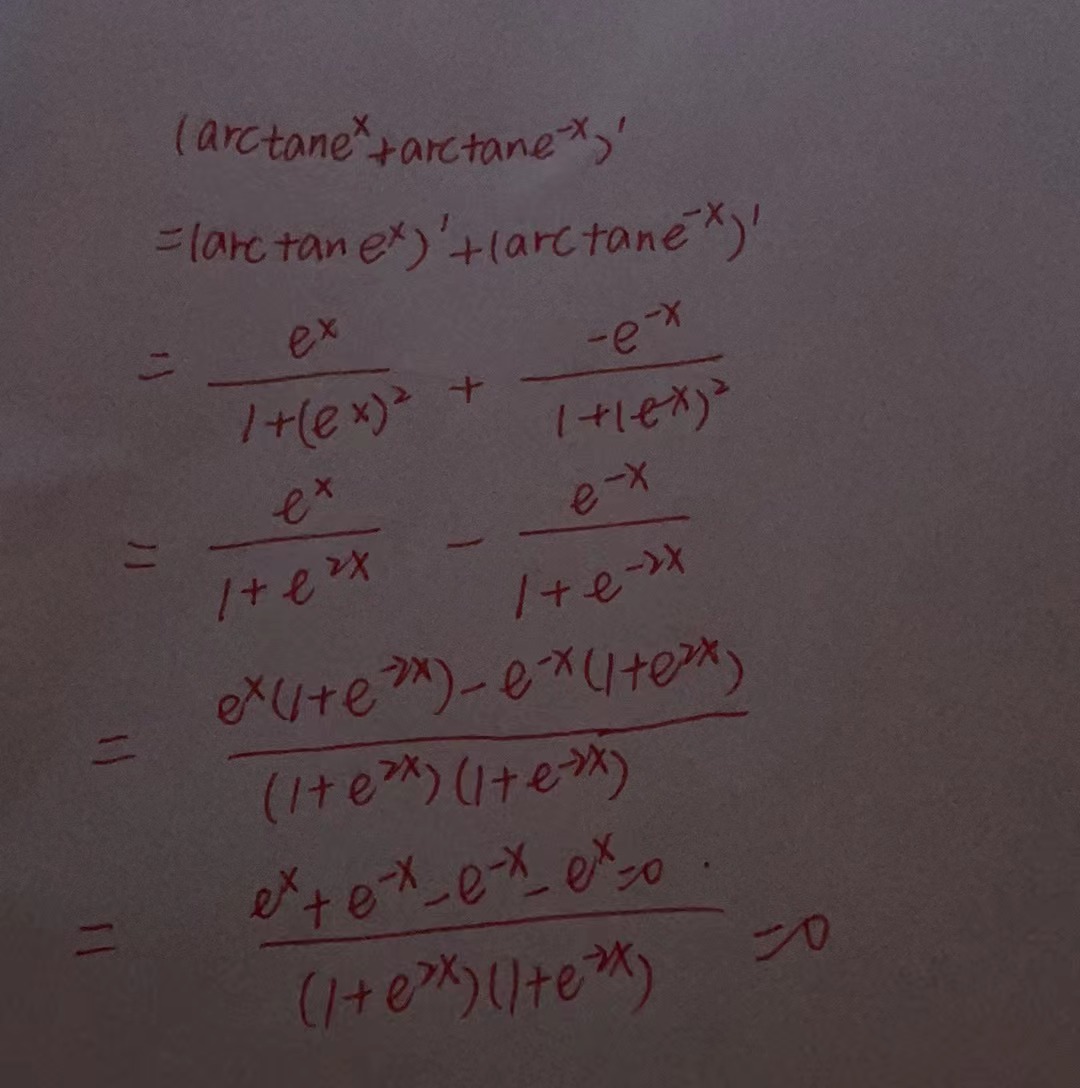 (arctane^x+arctane^-x)'
=(arctan e^x)'+(arctane^-x)'
= e^x/(1+(e^x)^2) + -e^-x/(1+(e^-x)^2)
= e^x/(1+e^2x) - e^-x/(1+e^-2x)
= (e^x(1+e^-2x)-e^-x(1+e^2x))/((1+e^2x)(1+e^-2x))
= (e^x+e^-x-e^-x-e^x=0)/((1+e^2x)(1+e^-2x)) =0